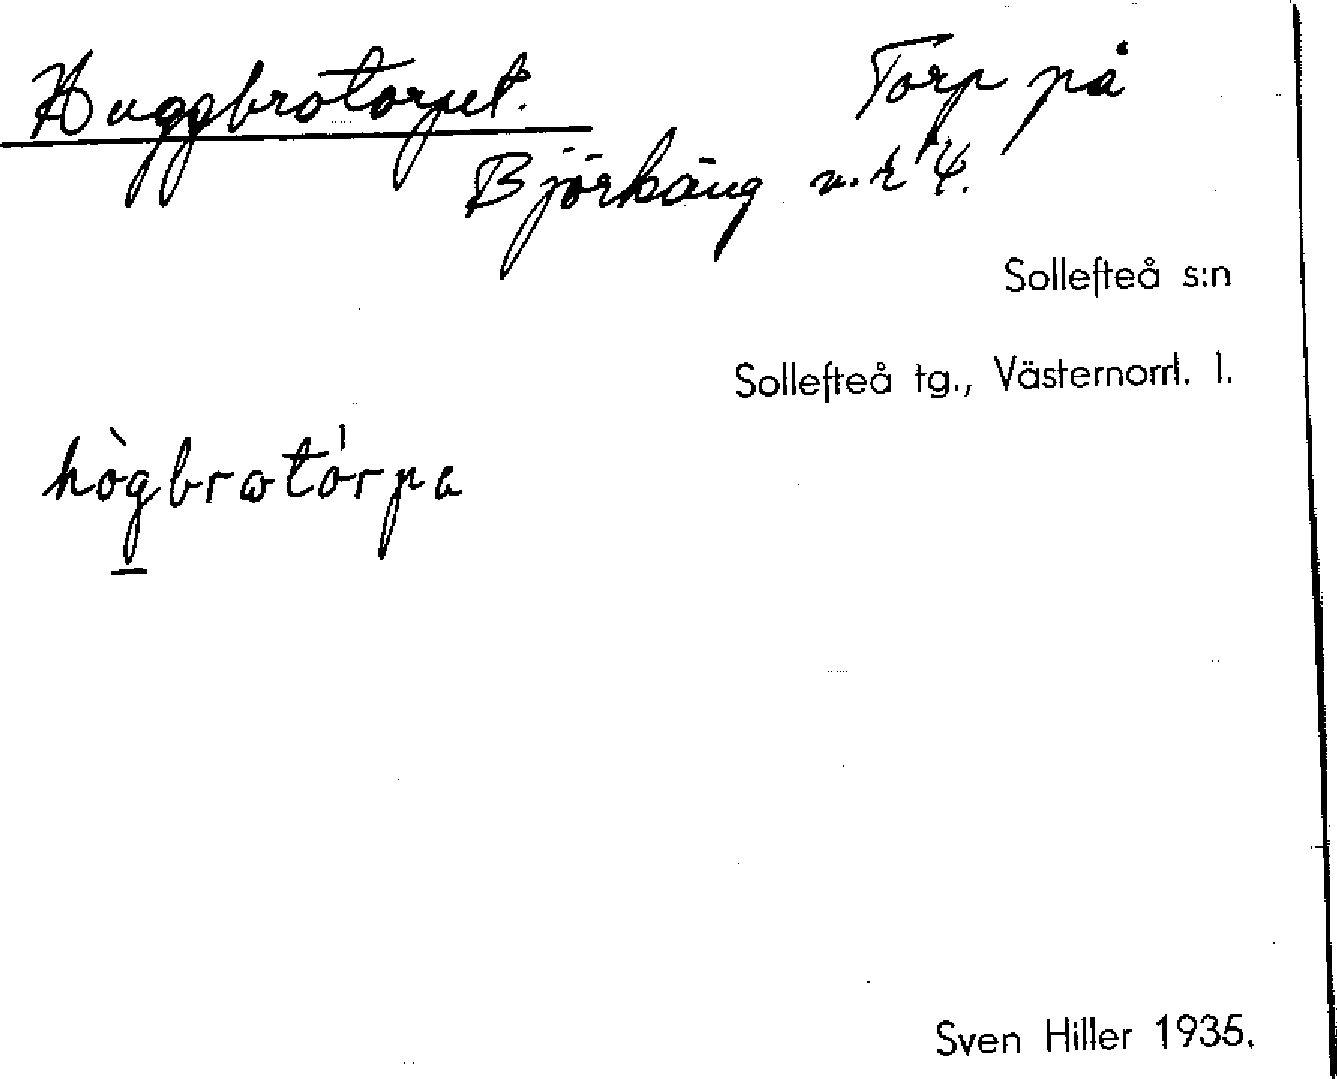 Huggbrotorpet. Torp på
Björkäng n:r 4.
Sollefteå s:n
Sollefteå tg., Västernorrl. l.
hògbrωtórpa
Sven Hiller 1935.